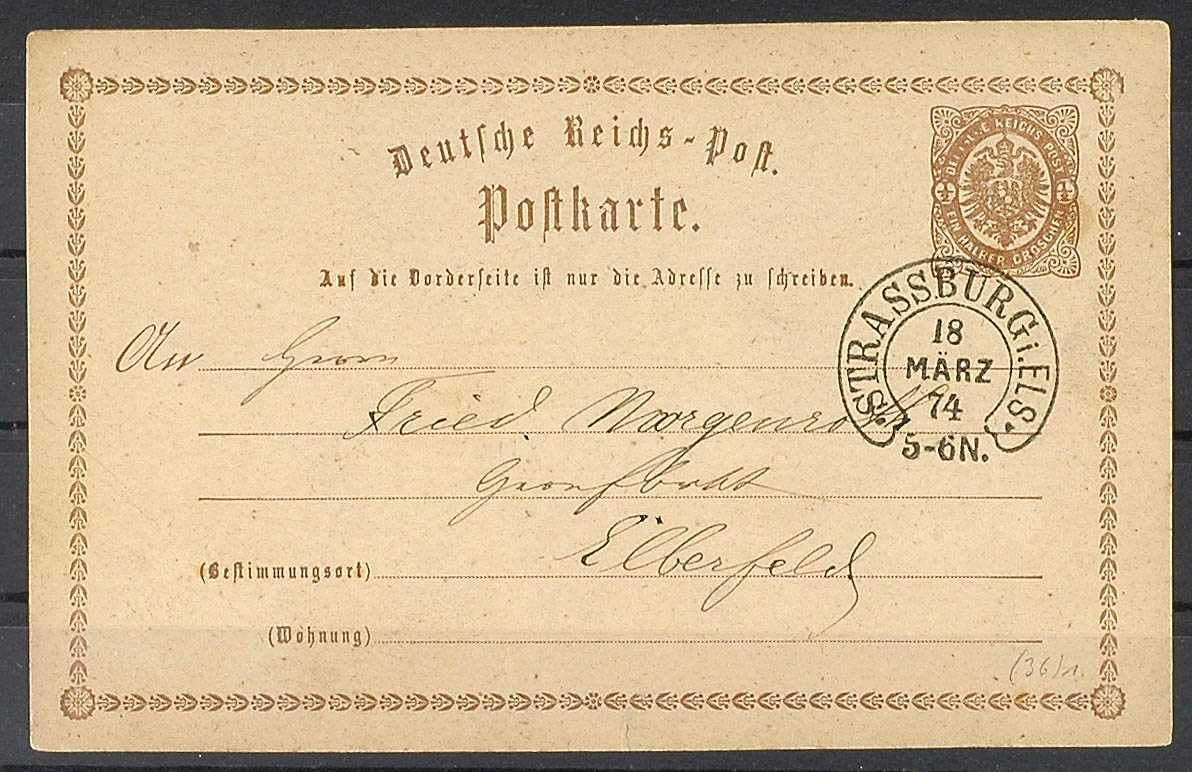 Deutsche Reichs-Post.
Postkarte.
DEUTSCHE REICHS-POST
½ ½
EIN HALBER GROSCHEN
Auf die Vorderseite ist nur die Adresse zu schreiben.
STRASSBURG i. ELS.
18
MÄRZ
74
5-6N.
An Herrn
Fried. Morgenroth
Elberfeld
(Bestimmungsort)
(Wohnung)
(36)